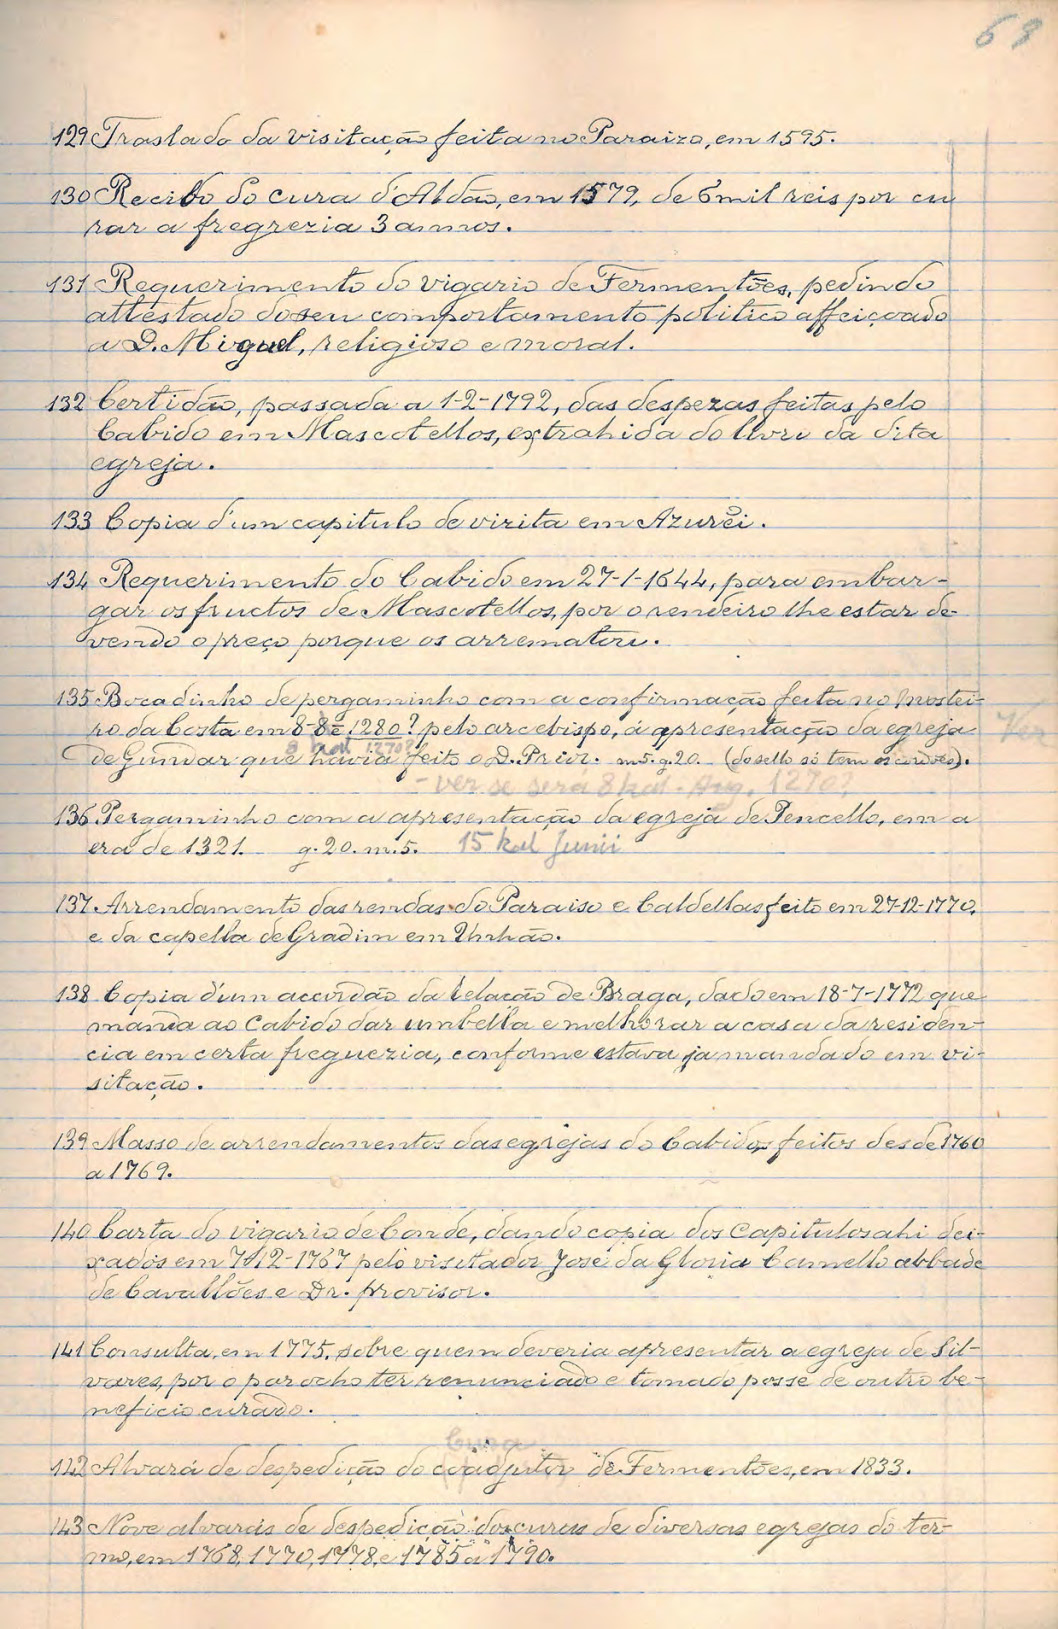 129 Traslado da visitação feita no Paraizo, em 1595.
130 Recibo do cura d'Aldão, em 1579, de 6 mil reis por cu
rar a fregrezia 3 annos.
131 Requerimento do vigario de Fermentões, pedindo
attestado do seu comportamento politico affeiçoado
a D. Miguel, religioso e moral.
132 Certidão, passada a 1-2-1792, das despezas feitas pelo
Cabido em Mascotellos, extrahida do livro da dita
egreja.
133 Copia d'um capitulo de vizita em Azurei.
134 Requerimento do Cabido em 27-1-1644, para embar-
gar os fructos de Mascotellos, por o rendeiro lhe estar de-
vendo o preço porque os arrematou.
135 Bocadinho de pergaminho com a confirmação feita no mostei-
ro da Costa em 8-8-1280? pelo arcebispo, á apresentação da egreja
Ver
8 kal 1270?
de Gundar que havia feito o D. Prior. m.5. g.20. (do sello só tem os cordões).
- ver se será 8 kal. Aug. 1270?
136 Pergaminho com a apresentação da egreja de Pencello, em a
era de 1321. g.20. m.5. 15 kal Junii
137 Arrendamento das rendas do Paraiso e Caldellas feito em 27-12-1770,
e da capella de Gradim em Unhão.
138 Copia d'um accordão da Relação de Braga, dado em 18-7-1772 que
manda ao Cabido dar umbella e melhorar a casa da residen-
cia em certa freguezia, conforme estava ja mandado em vi-
sitação.
139 Masso de arrendamentos das egrejas do Cabido, feitos desde 1760
a 1769.
140 Carta do vigario de Conde, dando copia dos Capitulos ahi dei-
xados em 7-12-1767 pelo visitador José da Gloria Camello abbade
de Cavallões e Dr. provisor.
141 Consulta, em 1775, sobre quem deveria apresentar a egreja de Sil-
vares, por o parocho ter renunciado e tomado posse de outro be-
neficio curado.
Cura
142 Alvará de despedição do coadjutor de Fermentões, em 1833.
143 Nove alvarás de despedição dos curas de diversas egrejas do ter-
mo, em 1768, 1770, 1778, e 1785 a 1790.